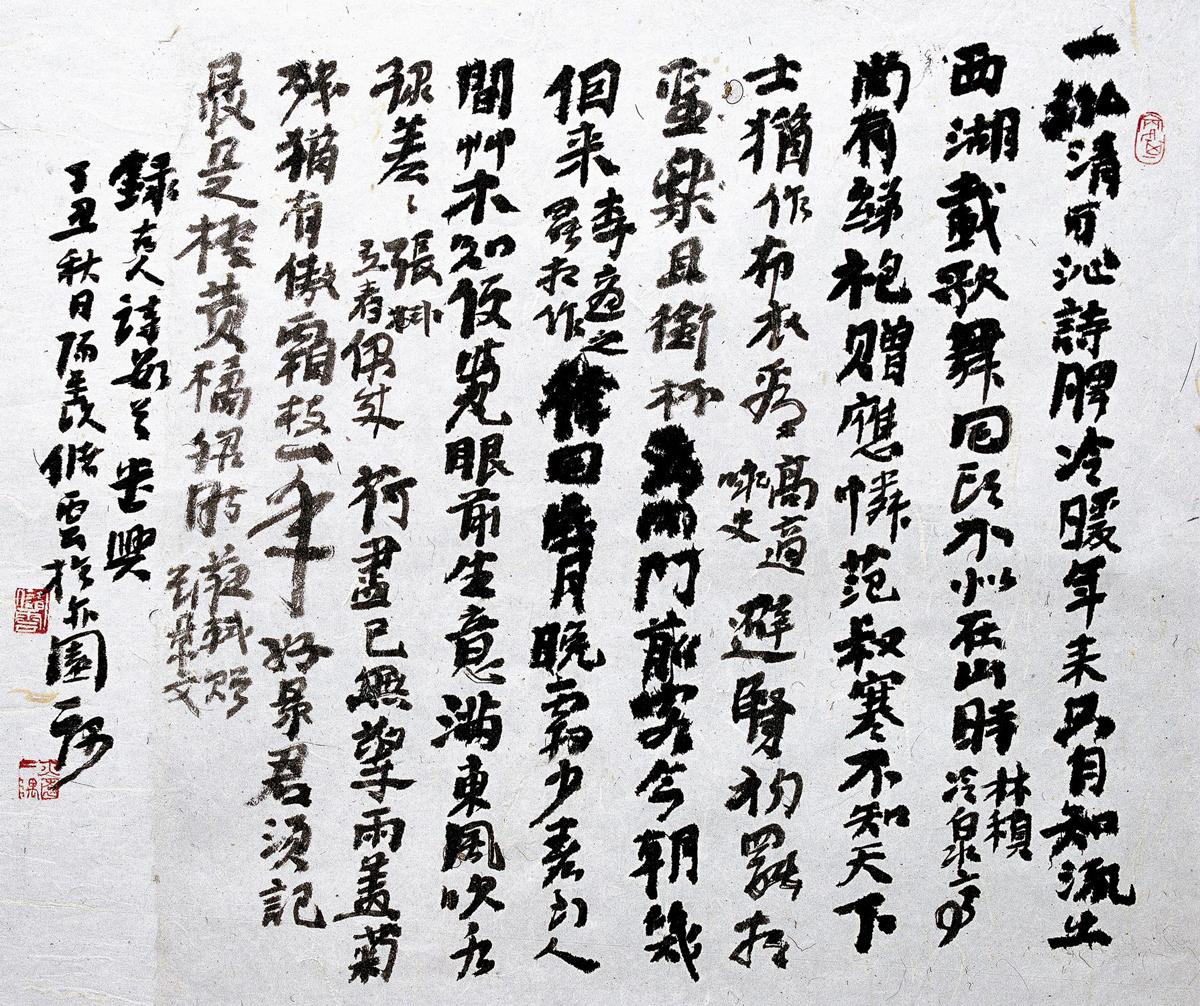 一泓清可沁詩脾冷暖年来只自知流出
西湖載歌舞回頭不似在山時
林稹
冷泉亭
尚有綈袍贈應憐范叔寒不知天下
士猶作布衣看
高適
咏史
避賢初罷相
聖樂且銜杯為問門前客今朝幾
個来
李適之
罷相作
律回歲月晚霜少春到人
間艸木知便覺眼前生意滿東風吹水
綠差〻
張栻
立春偶成
荷盡已無擎雨蓋菊
殘猶有傲霜枝一年好景君須記
最是橙黄橘緑時
蘇軾贈
劉景文
錄古人詩數首書興
丁丑秋日陽羡儲雲於亦園